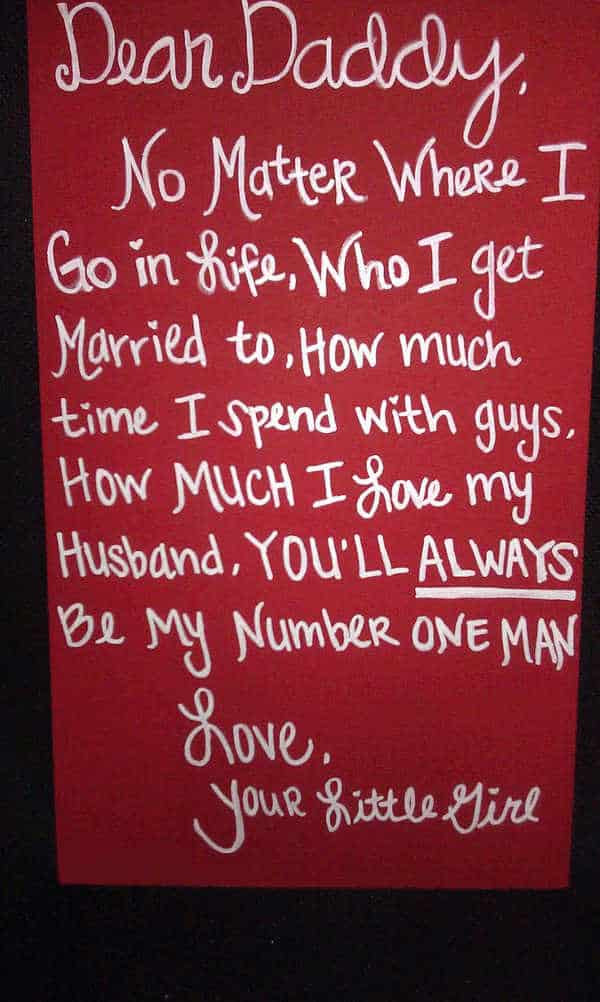 Dear Daddy,
No Matter Where I
Go in Life, Who I get
Married to, How much
time I spend with guys,
How MUCH I Love my
Husband, YOU'LL ALWAYS
Be My Number ONE MAN
Love,
Your Little Girl